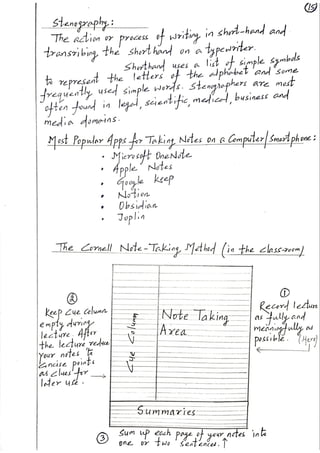 15
Stenography:
The action or process of writing in short-hand and
transribing the shorthand on a typewriter.
Shorthand uses a list of simple symbols
to represent the letters of the alphabet and some
frequently used simple words. Stenographers are most
often found in legal, scientific, medical, business and
media domains.
Most Popular Apps for Taking Notes on a Computer/Smartphone:
• Microsoft OneNote
• Apple Notes
• Google keep
• Notion
• Obsidian
• Joplin
The Cornell Note-Taking Method (in the class-room)
②
Keep Cue Column
empty during
lecture. After
the lecture reduce
your notes to
Concise points
as clues for
later use.
Cue Column
Note Taking
Area
①
Record lecture
as fully and
meaningfully as
possible. (Here)
Summaries
③ Sum up each page of your notes into
one or two sentences.